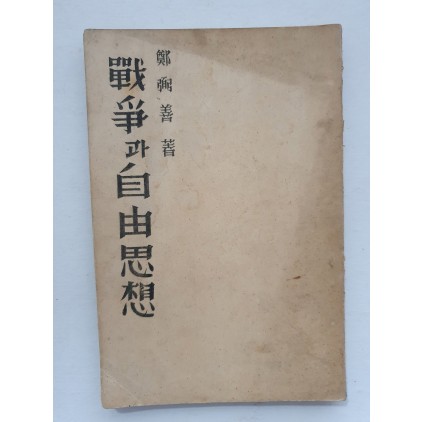 鄭弼善著
戰爭과自由思想